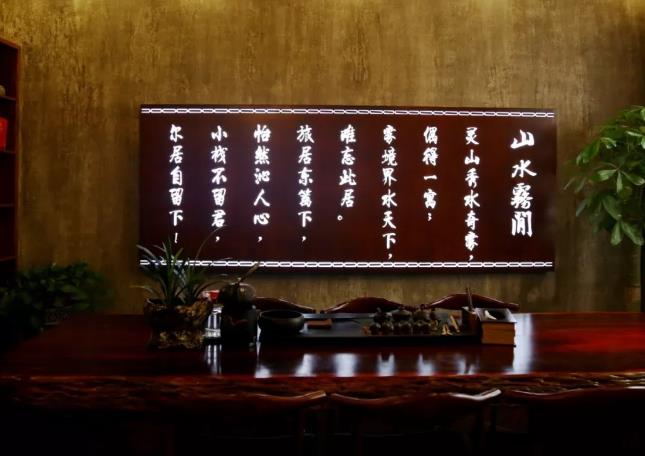 山水霧閒
灵山秀水奇雾，
偶得一寓；
雾境界水天下，
难忘此居。
旅居东篱下，
怡然沁人心，
小栈不留君，
尔居自留下！